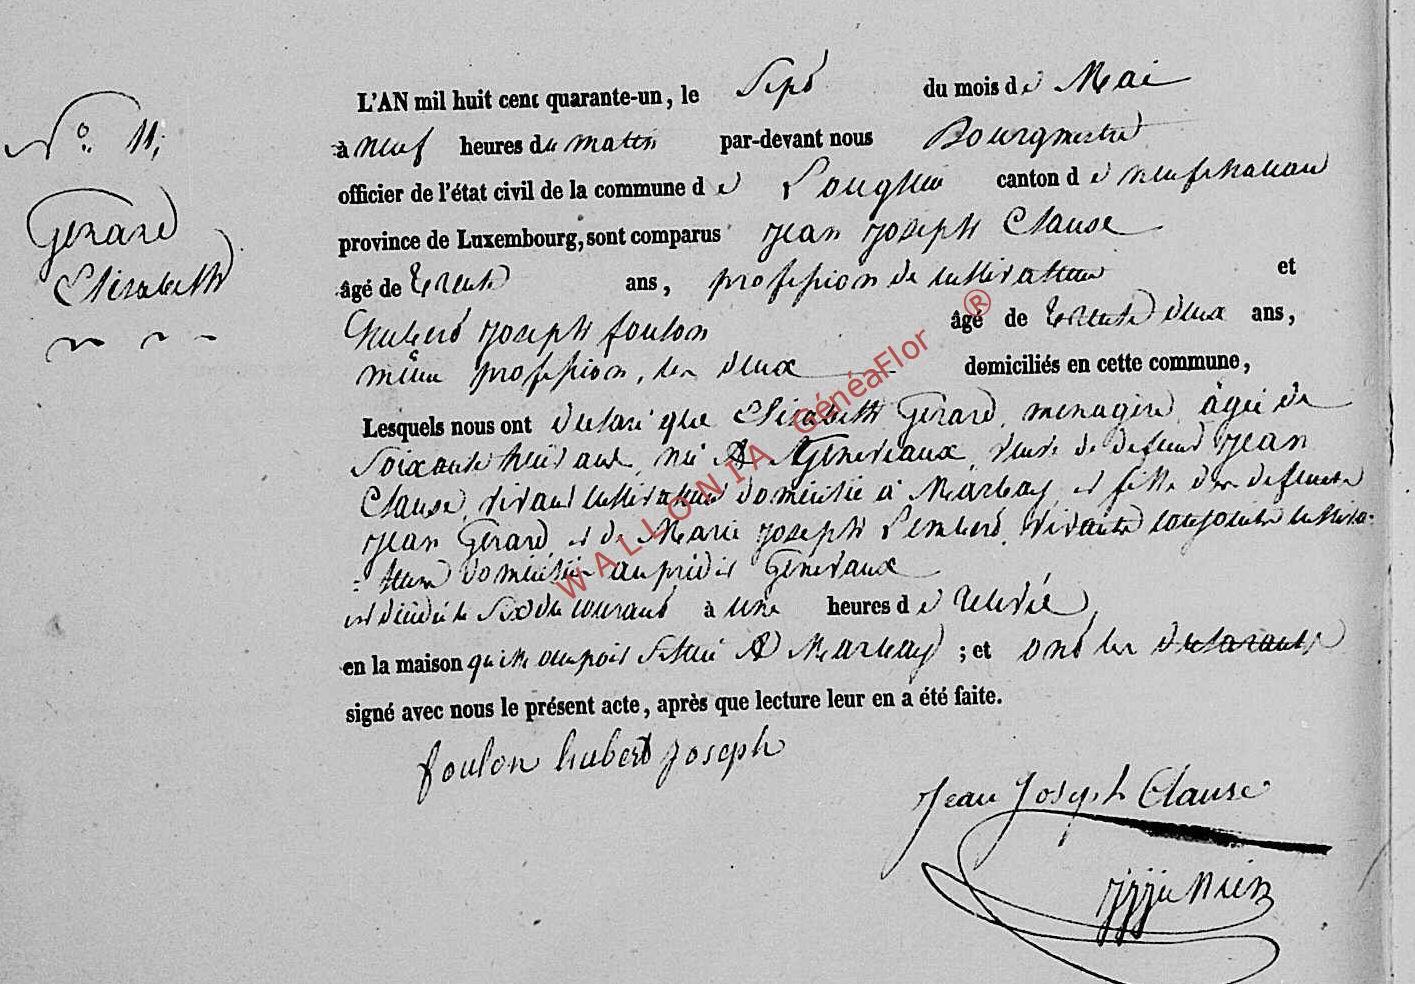 N° 11;
Gerard
Elisabeth
L'AN mil huit cent quarante-un, le Sept du mois de Mai
à neuf heures du matin par-devant nous Bourgmestre
officier de l'état civil de la commune de Longlier canton de neufchateau
province de Luxembourg, sont comparus Jean Joseph Clause
âgé de trente ans, profession de cultivateur et
hubert Joseph foulon âgé de trente deux ans,
même profession, les deux domiciliés en cette commune,
Lesquels nous ont declaré que Elisabeth Gerard, menagère, âgée de
Soixante huit ans, née à , veuve de defunt Jean
Clause, vivant cultivateur domicilié à Marbay, et fille des defunts
Jean Gerard, et de Marie Joseph Lambert, vivants conjoints cultiva-
-teurs domiciliés au predit
est décédée le Six du courant à une heures de relevée,
en la maison qu'elle occupoit Située à Marbay ; et ont les declarants
signé avec nous le présent acte, après que lecture leur en a été faite.
foulon hubert joseph
Jean Joseph Clause
WALLONIA GénéaFlor ®